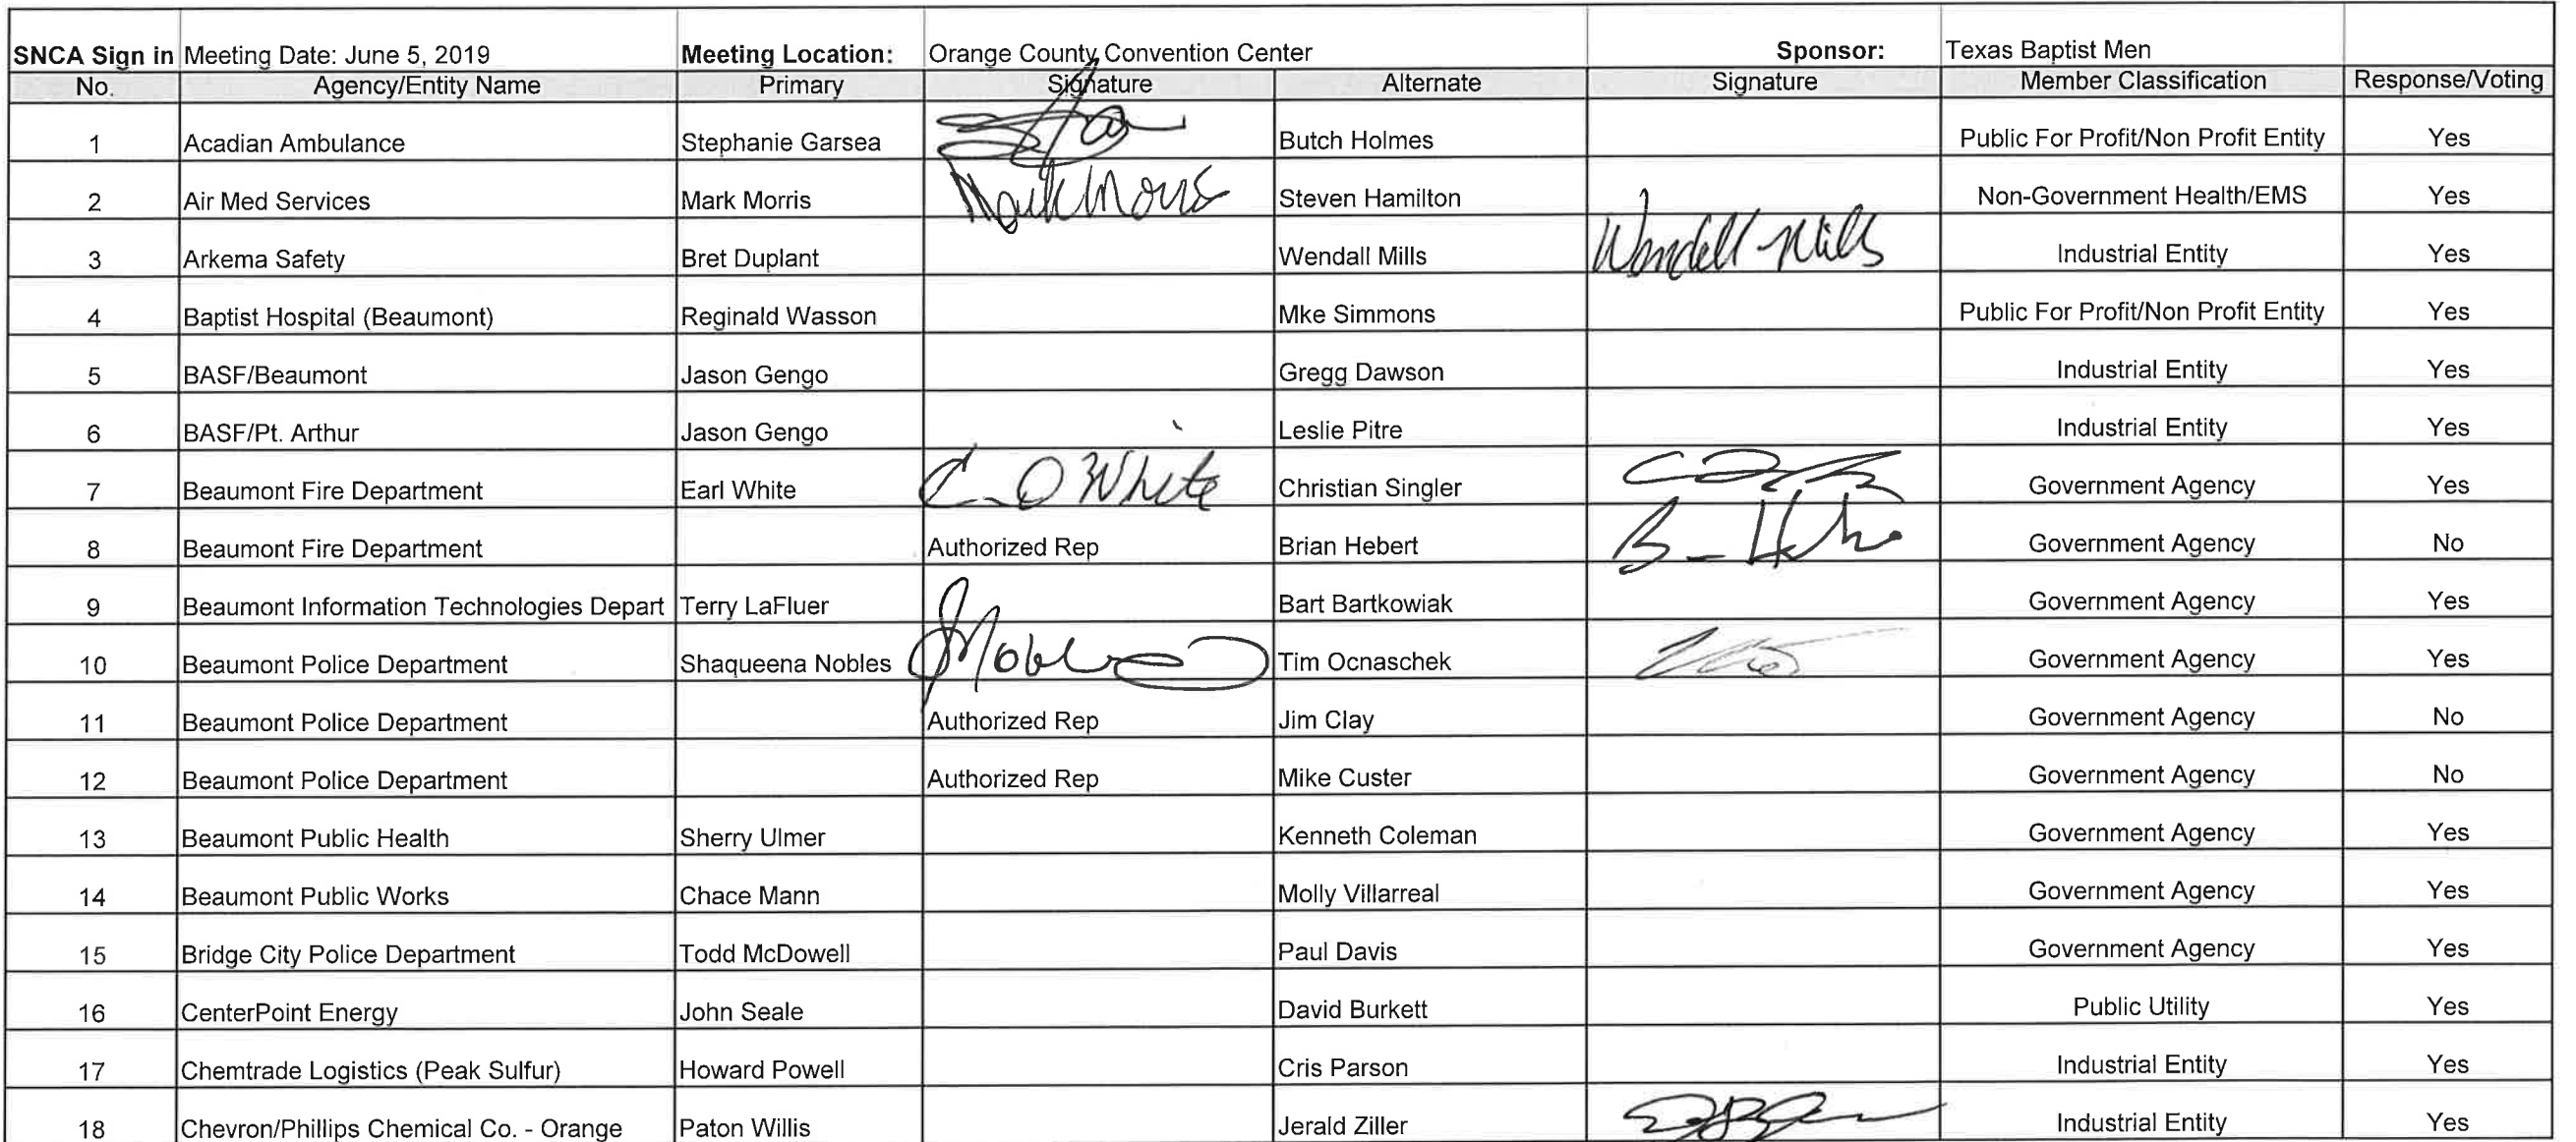 SNCA Sign in Meeting Date: June 5, 2019 Meeting Location: Orange County Convention Center Sponsor: Texas Baptist Men
No. Agency/Entity Name Primary Signature Alternate Signature Member Classification Response/Voting
1 Acadian Ambulance Stephanie Garsea Butch Holmes Public For Profit/Non Profit Entity Yes
2 Air Med Services Mark Morris Mark Morris Steven Hamilton Non-Government Health/EMS Yes
3 Arkema Safety Bret Duplant Wendall Mills Wendell Mills Industrial Entity Yes
4 Baptist Hospital (Beaumont) Reginald Wasson Mke Simmons Public For Profit/Non Profit Entity Yes
5 BASF/Beaumont Jason Gengo Gregg Dawson Industrial Entity Yes
6 BASF/Pt. Arthur Jason Gengo Leslie Pitre Industrial Entity Yes
7 Beaumont Fire Department Earl White White Christian Singler Government Agency Yes
8 Beaumont Fire Department Authorized Rep Brian Hebert Government Agency No
9 Beaumont Information Technologies Depart Terry LaFluer Bart Bartkowiak Government Agency Yes
10 Beaumont Police Department Shaqueena Nobles Tim Ocnaschek Government Agency Yes
11 Beaumont Police Department Authorized Rep Jim Clay Government Agency No
12 Beaumont Police Department Authorized Rep Mike Custer Government Agency No
13 Beaumont Public Health Sherry Ulmer Kenneth Coleman Government Agency Yes
14 Beaumont Public Works Chace Mann Molly Villarreal Government Agency Yes
15 Bridge City Police Department Todd McDowell Paul Davis Government Agency Yes
16 CenterPoint Energy John Seale David Burkett Public Utility Yes
17 Chemtrade Logistics (Peak Sulfur) Howard Powell Cris Parson Industrial Entity Yes
18 Chevron/Phillips Chemical Co. - Orange Paton Willis Jerald Ziller Industrial Entity Yes